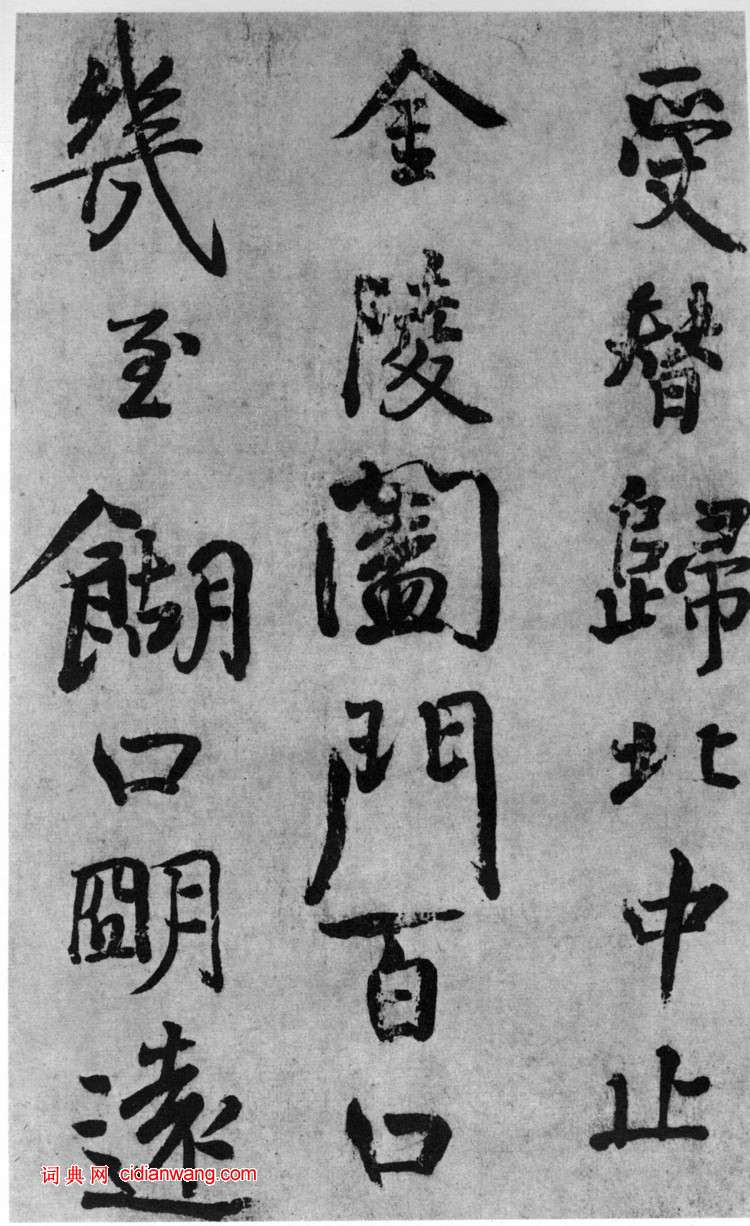 受替歸北中止
金陵闔門百口
幾至餬口明遠
词典网 cidianwang.com